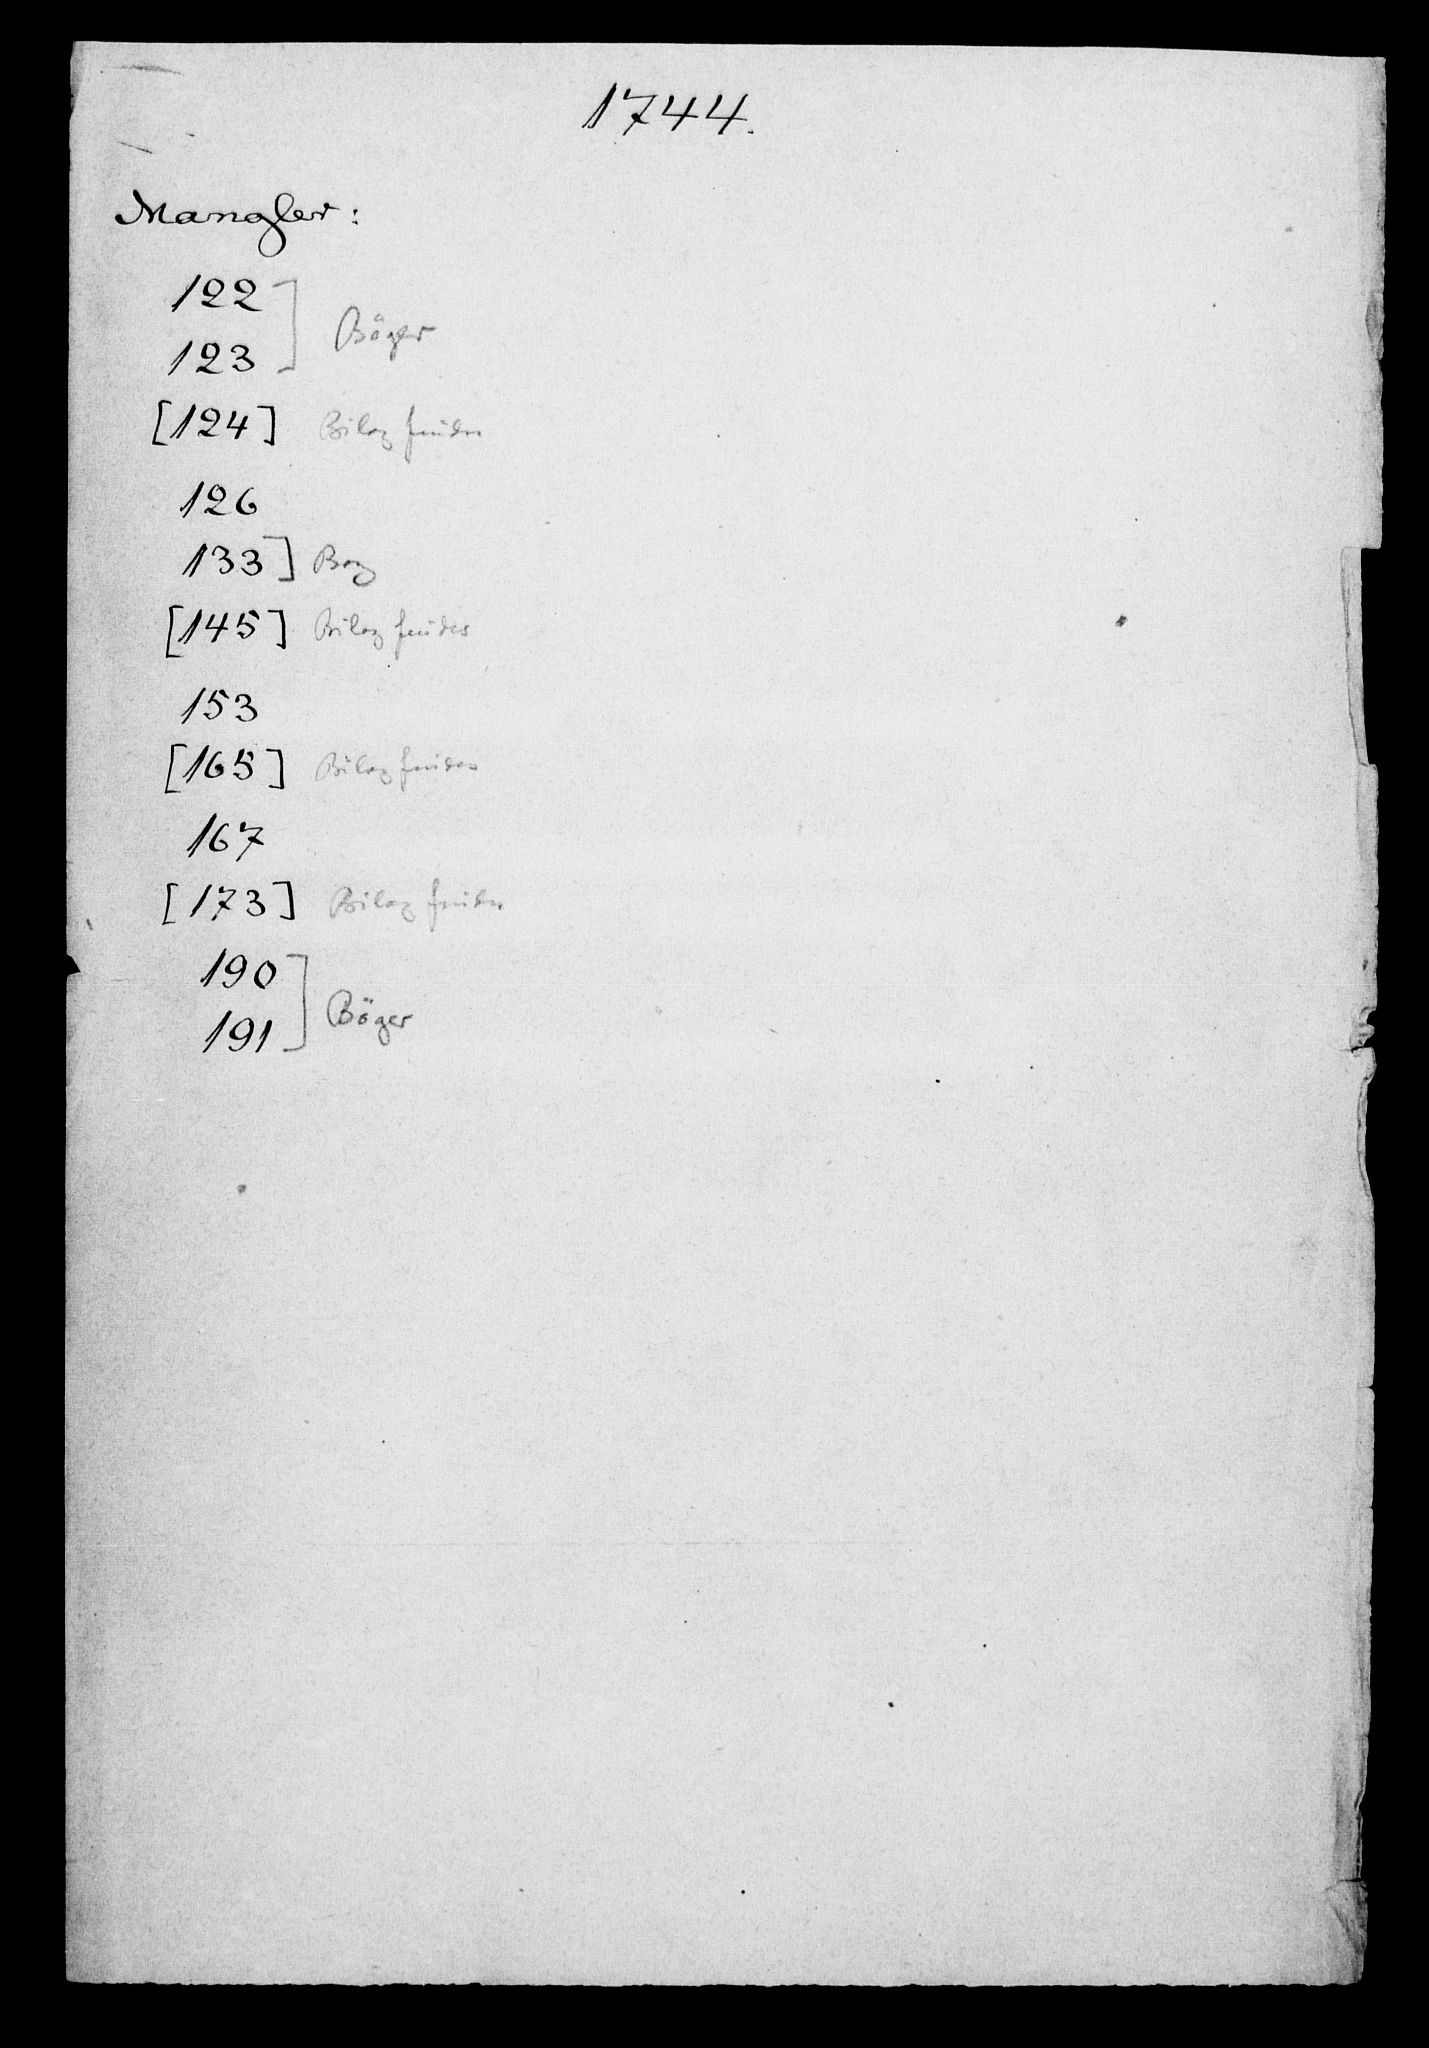 1744.
Mangler:
122
123 ] Böger
[124] Bilag findes
126
133] Bog
[145] Bilag findes
153
[165] Bilag findes
167
[173] Bilag findes
190
191 ] Böger